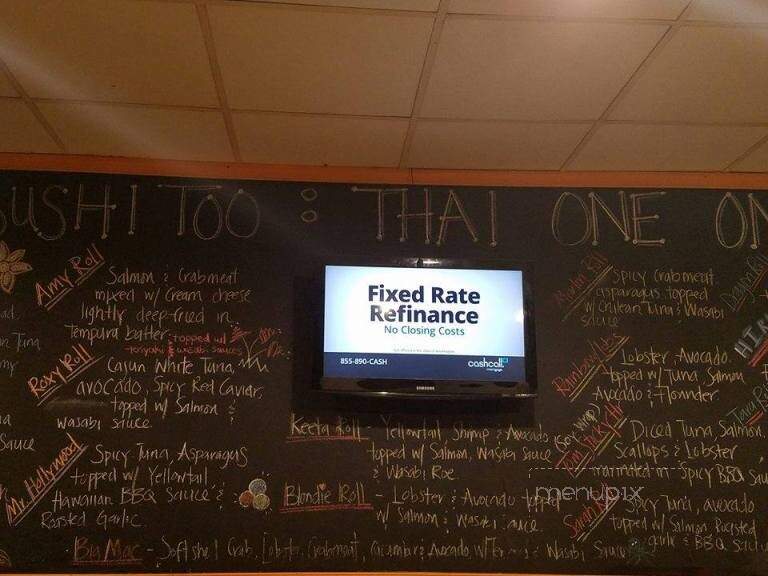 SUSHI TOO : THAI ONE ON
Amy Roll
Salmon & Crabmeat
mixed w/ Cream cheese
lightly deep-fried in
Tempura batter topped w/
teriyaki & wasabi sauces
Roxy Roll
Cajun White Tuna,
avocado, Spicy Red Caviar,
topped w/ Salmon &
wasabi sauce
Mr. Hollywood
Spicy Tuna, Asparagus
topped w/ Yellowtail
Hawaiian BBQ Sauce &
Roasted Garlic.
Fixed Rate
Refinance
No Closing Costs
855-890-CASH
cashcall
mortgage
SAMSUNG
Keeta Roll - Yellowtail, Shrimp & Avocado
topped w/ Salmon, Wasabi Sauce
& Wasabi Roe.
Blondie Roll - Lobster & Avocado topped
w/ Salmon & Wasabi Sauce.
Big Mac - Soft shell Crab, Lobster, Crabmeat, Cucumber & Avocado w/ & Wasabi Sauce
Spicy Crabmeat
asparagus topped
w/ Chilean Tuna & Wasabi
sauce
Lobster, Avocado.
topped w/ Tuna, Salmon,
Avocado & Flounder
(Soy wrap)
Diced Tuna, Salmon,
Scallops & Lobster
marinated in Spicy BBQ Sau
Spicy Tuna, avocado
topped w/ Salmon, Roasted
garlic & BBQ sauce
Sauce
menupix